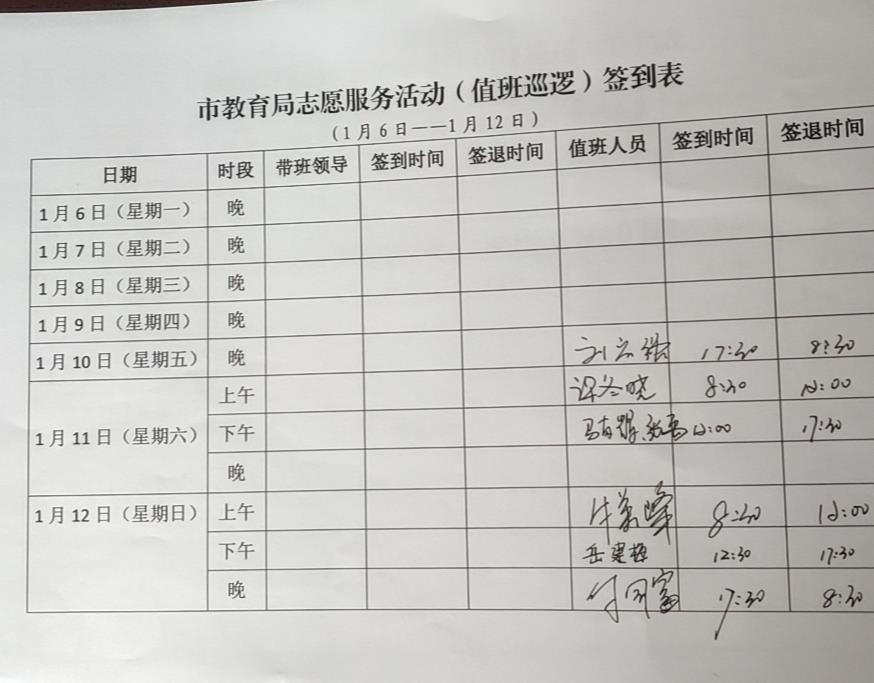 市教育局志愿服务活动（值班巡逻）签到表
（1月6日——1月12日）
日期 时段 带班领导 签到时间 签退时间 值班人员 签到时间 签退时间
1月6日（星期一） 晚
1月7日（星期二） 晚
1月8日（星期三） 晚
1月9日（星期四） 晚
1月10日（星期五） 晚 17:30 8:30
1月11日（星期六） 上午 8:30 12:00
下午 12:00 17:30
晚
1月12日（星期日） 上午 8:30 12:00
下午 岳建梅 12:30 17:30
晚 17:30 8:30